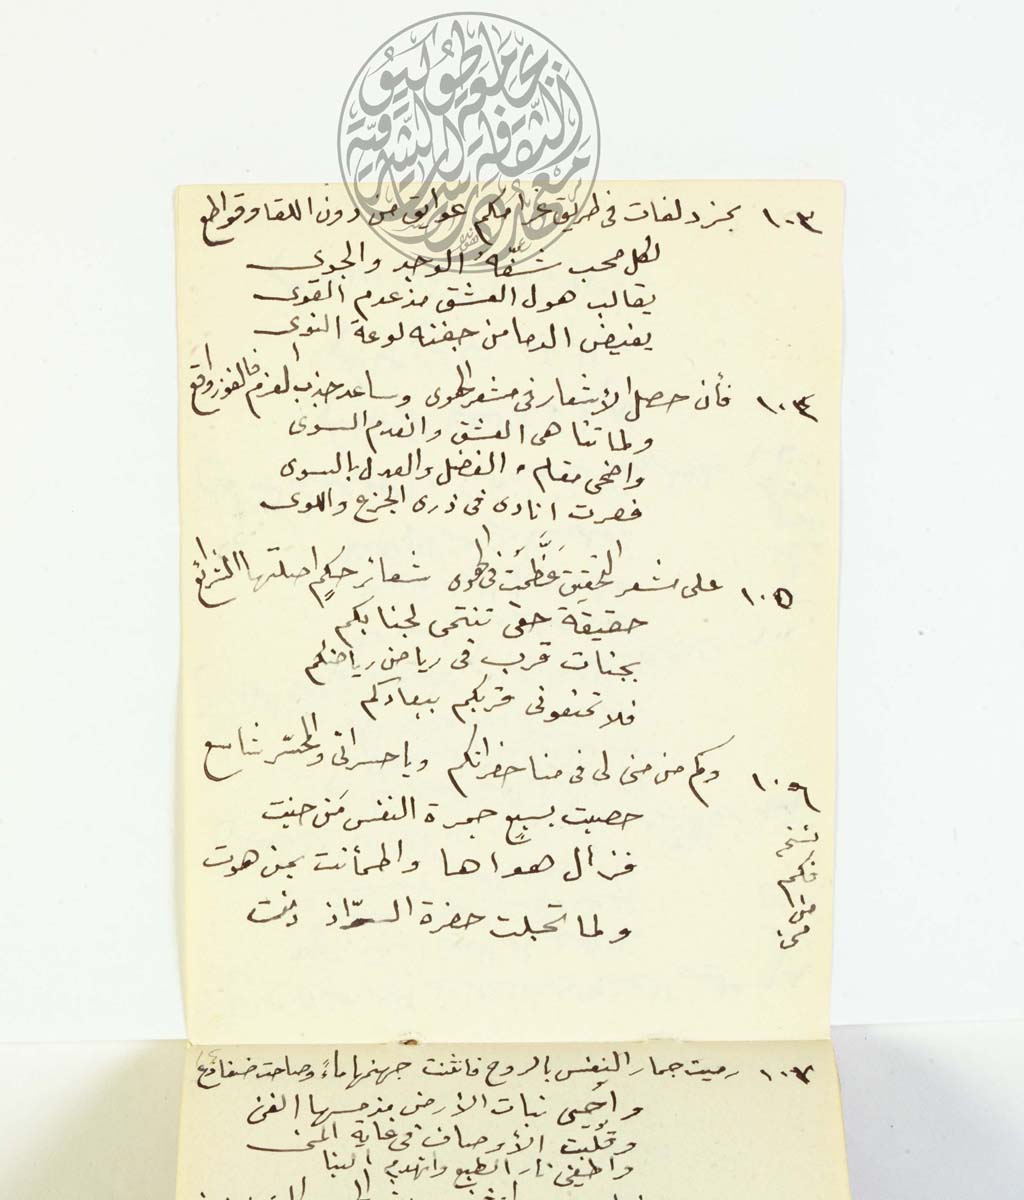 جامعة طوكيو
معهد الثقافة الشرقية
١٠٣ بمزدلفات في طريق غرامكم عوايق من دون اللقا وقواطع
لكل محب شفّه الوجد والجوى
يقالب هول العشق مذ عدم القوى
يفيض الدما من جفنه لوعة النوى
١٠٤ فأن حصل الأشعار في مشعر الهوى وساعد جذب العزم فالفوز واقع
ولما تناهى العشق وانعدم السوى
واضحى مقام الفضل والعدل بالسوى
فصرت انادى في ذرى الجزع واللوى
١٠٥ على مشعر التحقيق عَظَّمتُ في الهوى شعائر حكمٍ اصلتها الشرائع
حقيقة حقى تنتمى لجنابكم
بجنات قرب في رياض رياضكم
فلا تخفونى قربكم ببعادكم
١٠٦ وكم من منى لى في منا حضراتكم ويا حسراتى والمحسّر شاسع
نسخه فكم من منى
حصبت بسبعٍ جمرة النفس مَن جنت
فزال هواها واطمأنت بمن هوت
ولما تجلت حضرة الذات دنت
١٠٧ رميت جمار النفس بالروح فانثنت جهنمها ماءً وصاحت ضفادع
واُحيى نبات الأرض مذ مسها الفن
وقُلبت الأوصاف في غاية المنى
واطفى نار الطبع وانهدم البنا